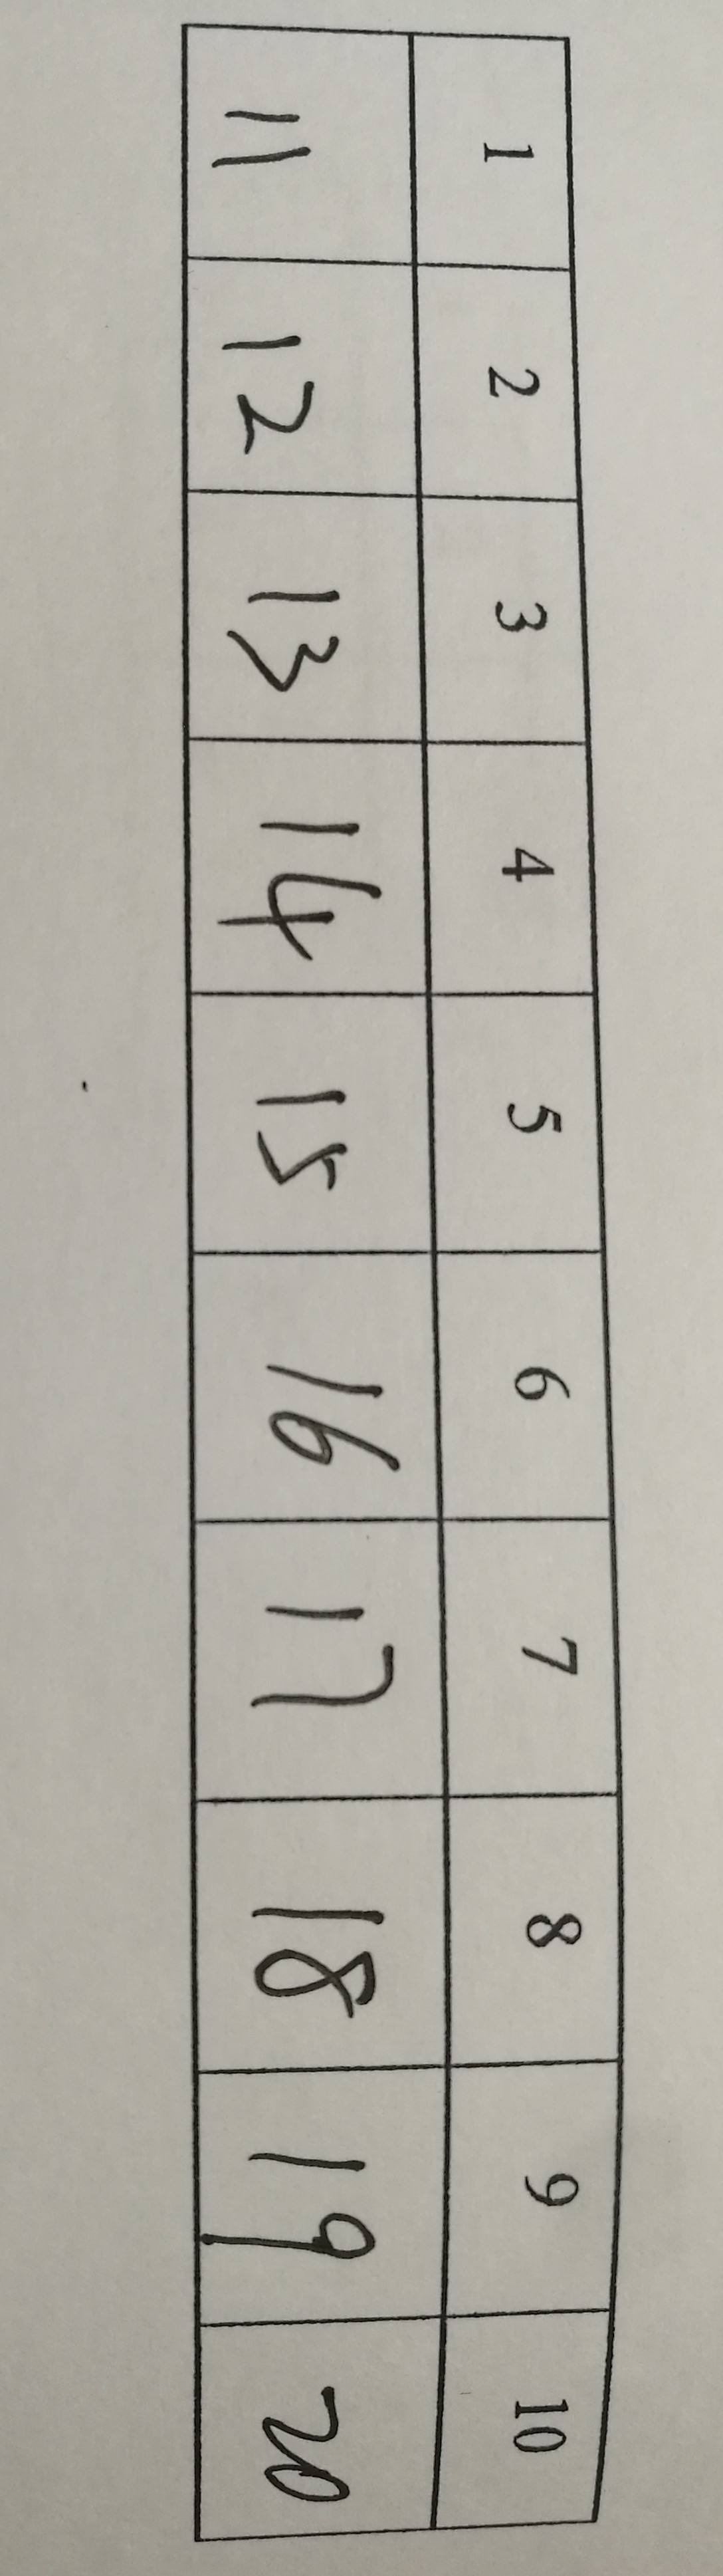 1 2 3 4 5 6 7 8 9 10
11 12 13 14 15 16 17 18 19 20